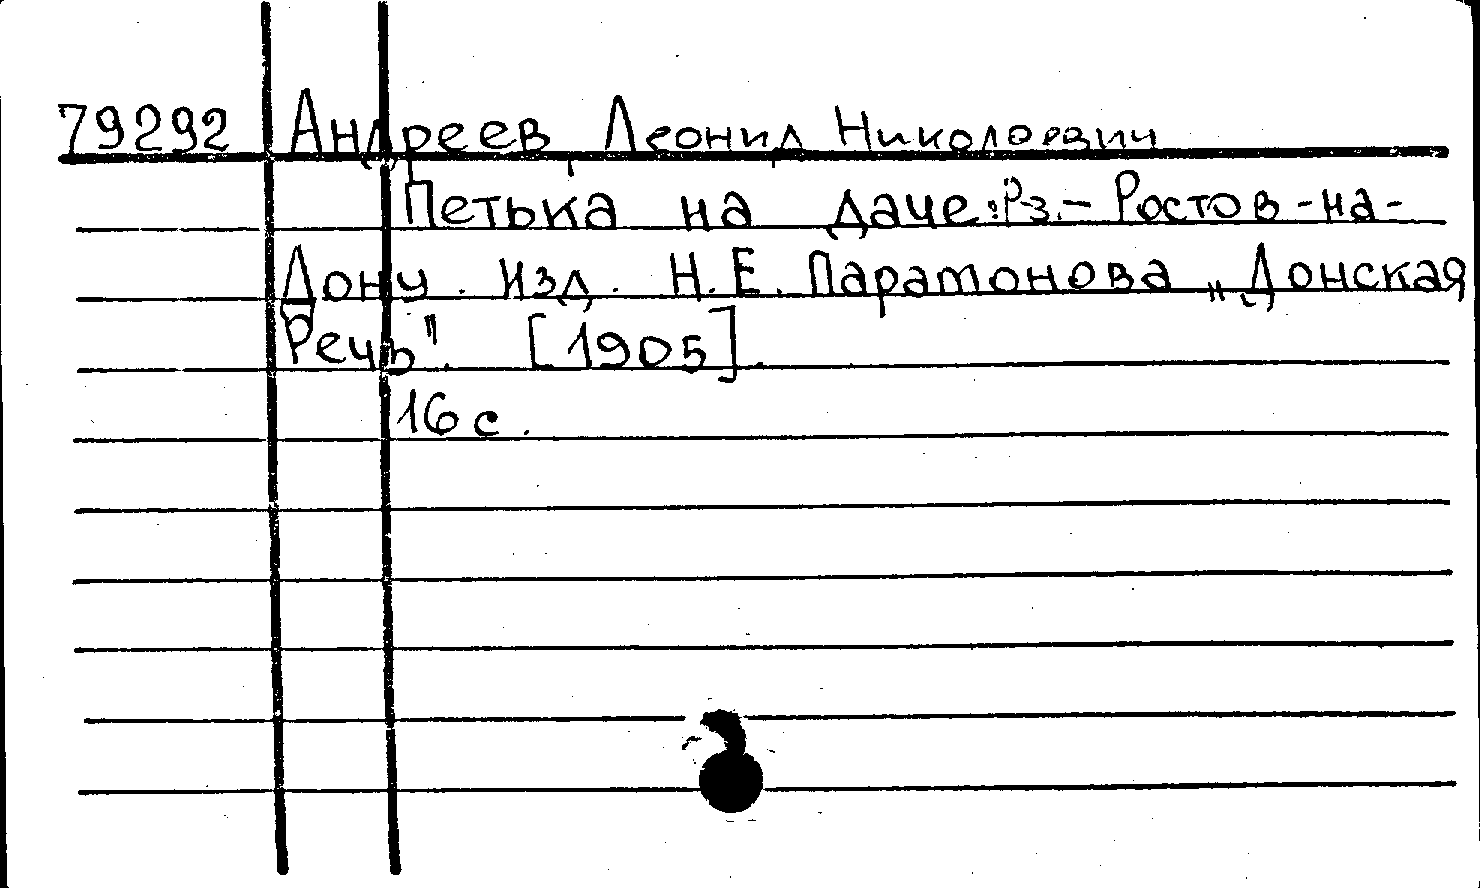 79292 Андреев, Леонид Николаевич
Петька на даче: Рз. - Ростов-на-
Дону. Изд. Н.Е. Парамонова „Донская
Речь". [1905].
16 с.